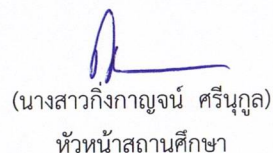 (นางสาวกิ่งกาญจน์ ศรีนุกูล)
หัวหน้าสถานศึกษา